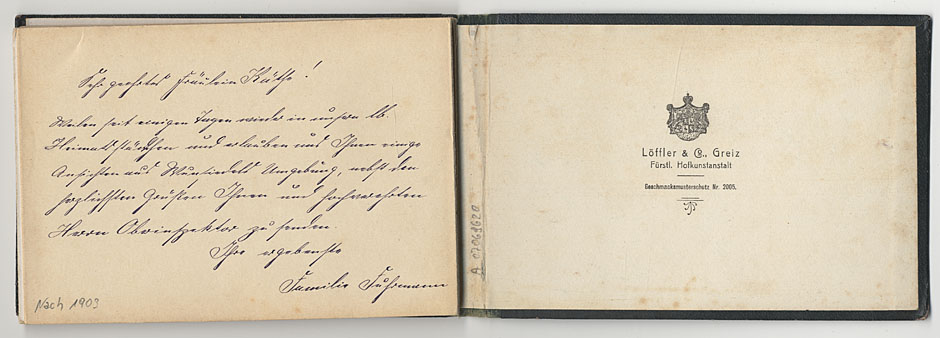 Sehr geehrtes Fräulein Käthe!
Weilen seit einigen Tagen wieder in unsrm lb.
Heimatstädtchen und erlauben uns Ihnen einige
Ansichten aus Wunsiedels Umgebung, nebst den
herzlichsten Grüßen Ihnen und hochverehrten
Herrn Oberinspektor zu senden.
Ihre ergebenste
Familie Fuhrmann
Nach 1903
A 07063620
Löffler & Co., Greiz
Fürstl. Hofkunstanstalt
Geschmacksmusterschutz Nr. 2005.